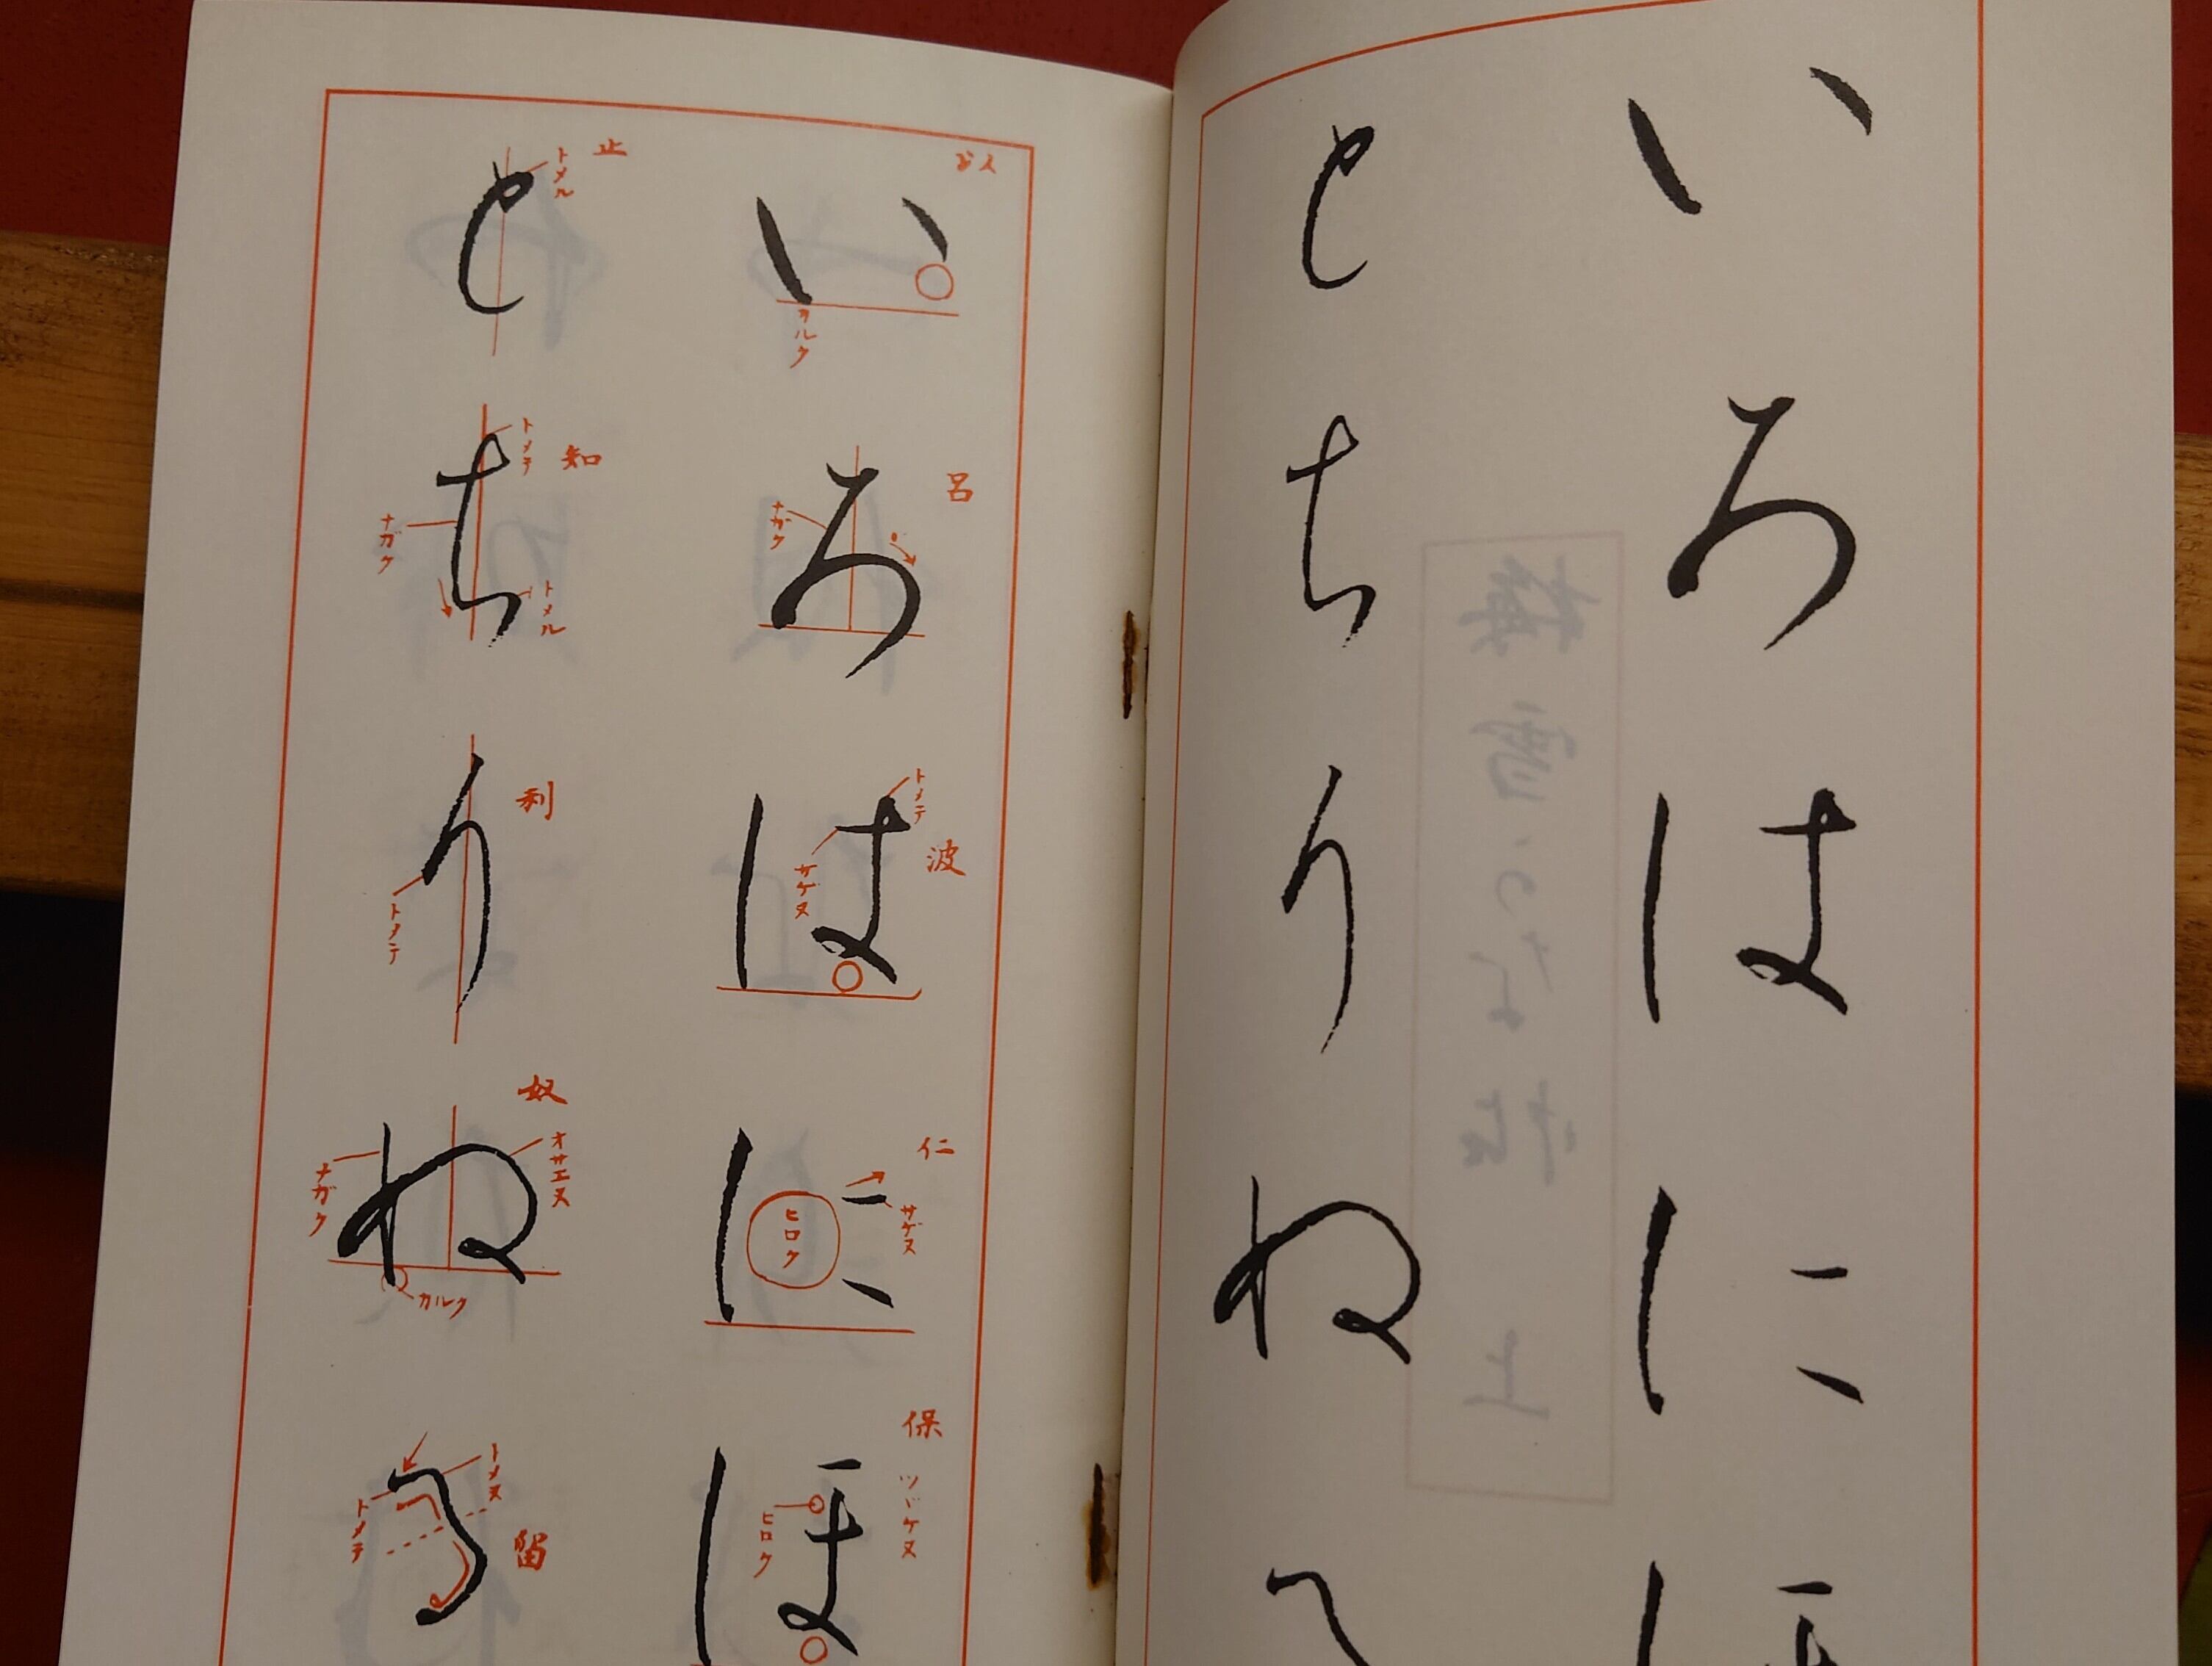 いろはにほ
とちりぬ
い
以
カルク
ろ
呂
ナガク
は
波
トメテ
サゲヌ
に
仁
ヒロク
サゲヌ
ほ
保
ツヾケヌ
ヒロク
と
止
トメル
ち
知
トメテ
ナガク
トメル
り
利
トメテ
ぬ
奴
ナガク
オサエヌ
カルク
る
留
トメヌ
トメテ